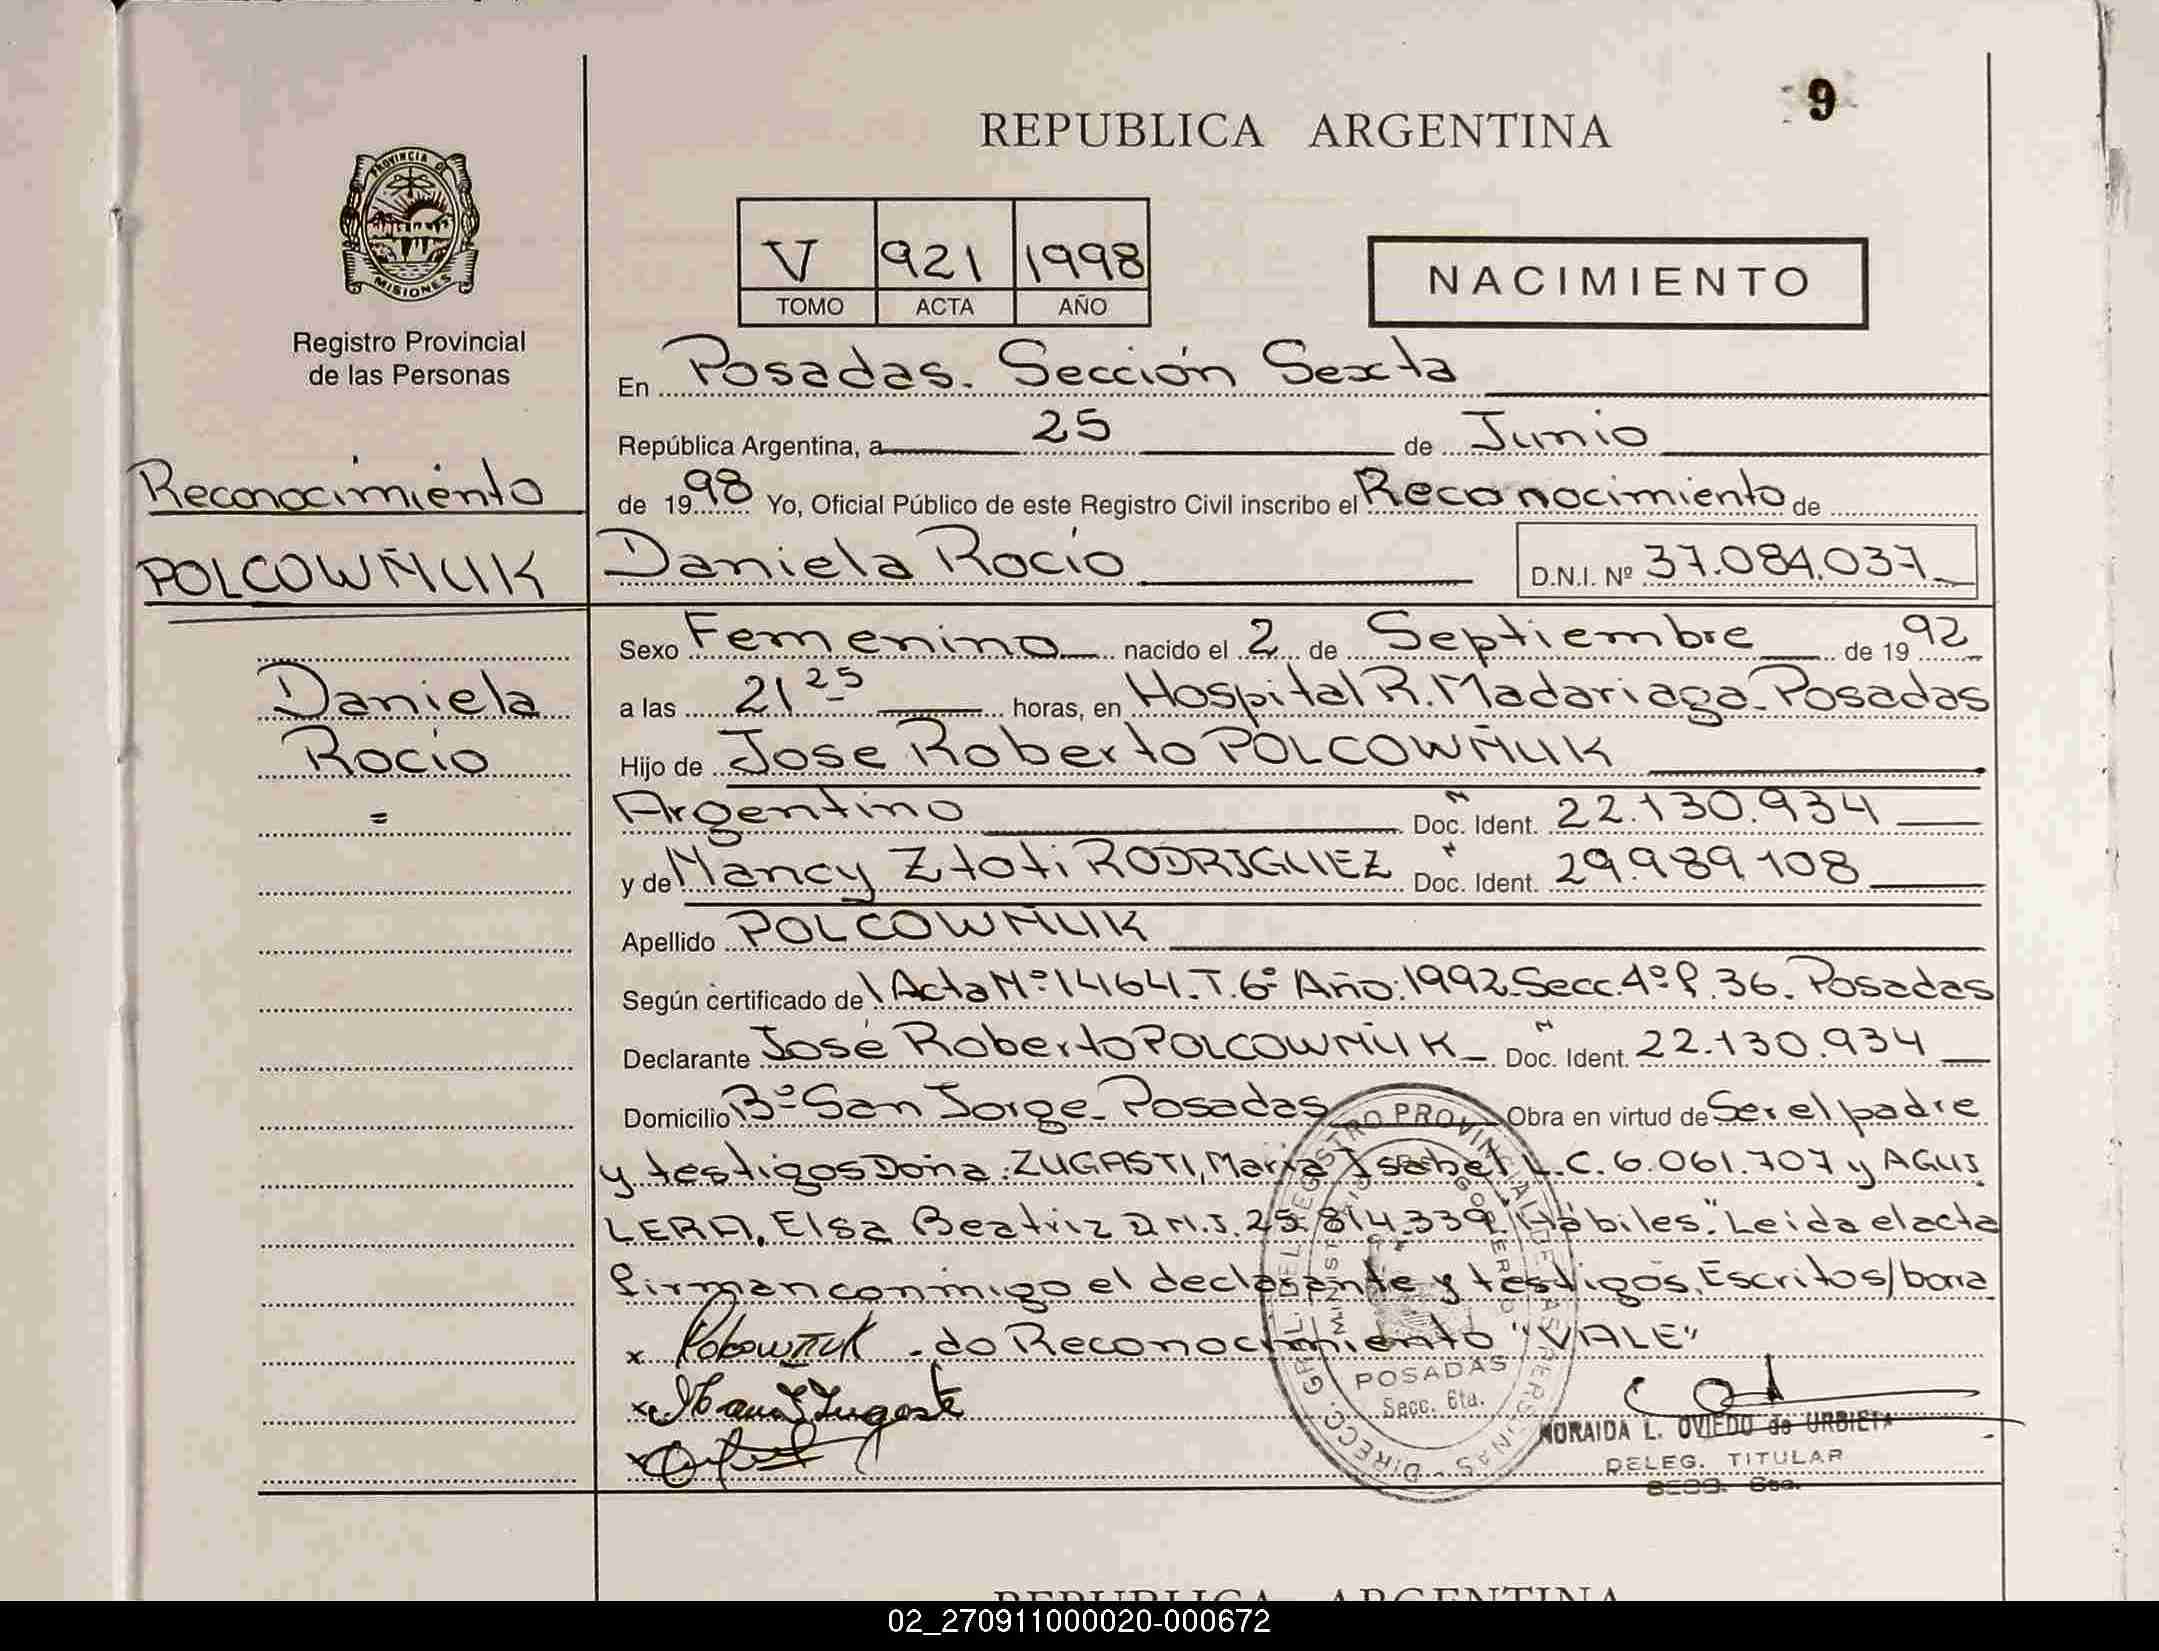 9
REPUBLICA ARGENTINA
PROVINCIA D
MISIONES
Registro Provincial
de las Personas
V 921 1998
TOMO ACTA AÑO
NACIMIENTO
En Posadas. Sección Sexta
República Argentina, a 25 de Junio
Reconocimiento
de 1998 Yo, Oficial Público de este Registro Civil inscribo el Reconocimiento de
POLCOWÑUK
Daniela Rocío D.N.I. Nº 37.084.037
Sexo Femenino nacido el 2 de Septiembre de 1992
Daniela
a las 21 25 horas, en Hospital R. Madariaga-Posadas
Rocío
Hijo de Jose Roberto POLCOWÑUK
=
Argentino Doc. Ident. 22.130.934
y de Nancy Ztoti RODRIGUEZ Doc. Ident. 29.989.108
Apellido POLCOWÑUK
Según certificado de \ Acta Nº 1464. T. 6º Año: 1992-Secc. 4º f. 36. Posadas
Declarante José Roberto POLCOWÑUK Doc. Ident. 22.130.934
Domicilio Bº San Jorge-Posadas Obra en virtud de Ser el padre
y testigos Doña: ZUGASTI, María Isabel L.C. 6.061.707 y AGUI
LERA, Elsa Beatriz D.N.I. 25.814.339 "Hábiles". Leida el acta
firman conmigo el declarante y testigos. Escritos/borra
x Polcowñuk - do Reconocimiento "VALE"
DIRECC. GRAL. DEL REGISTRO PROVINCIAL DE LAS PERSONAS
POSADAS
Secc. 6ta.
NORAIDA L. OVIEDO de URBIETA
DELEG. TITULAR
SECC. 6ta.
REPUBLICA ARGENTINA
02_270911000020-000672